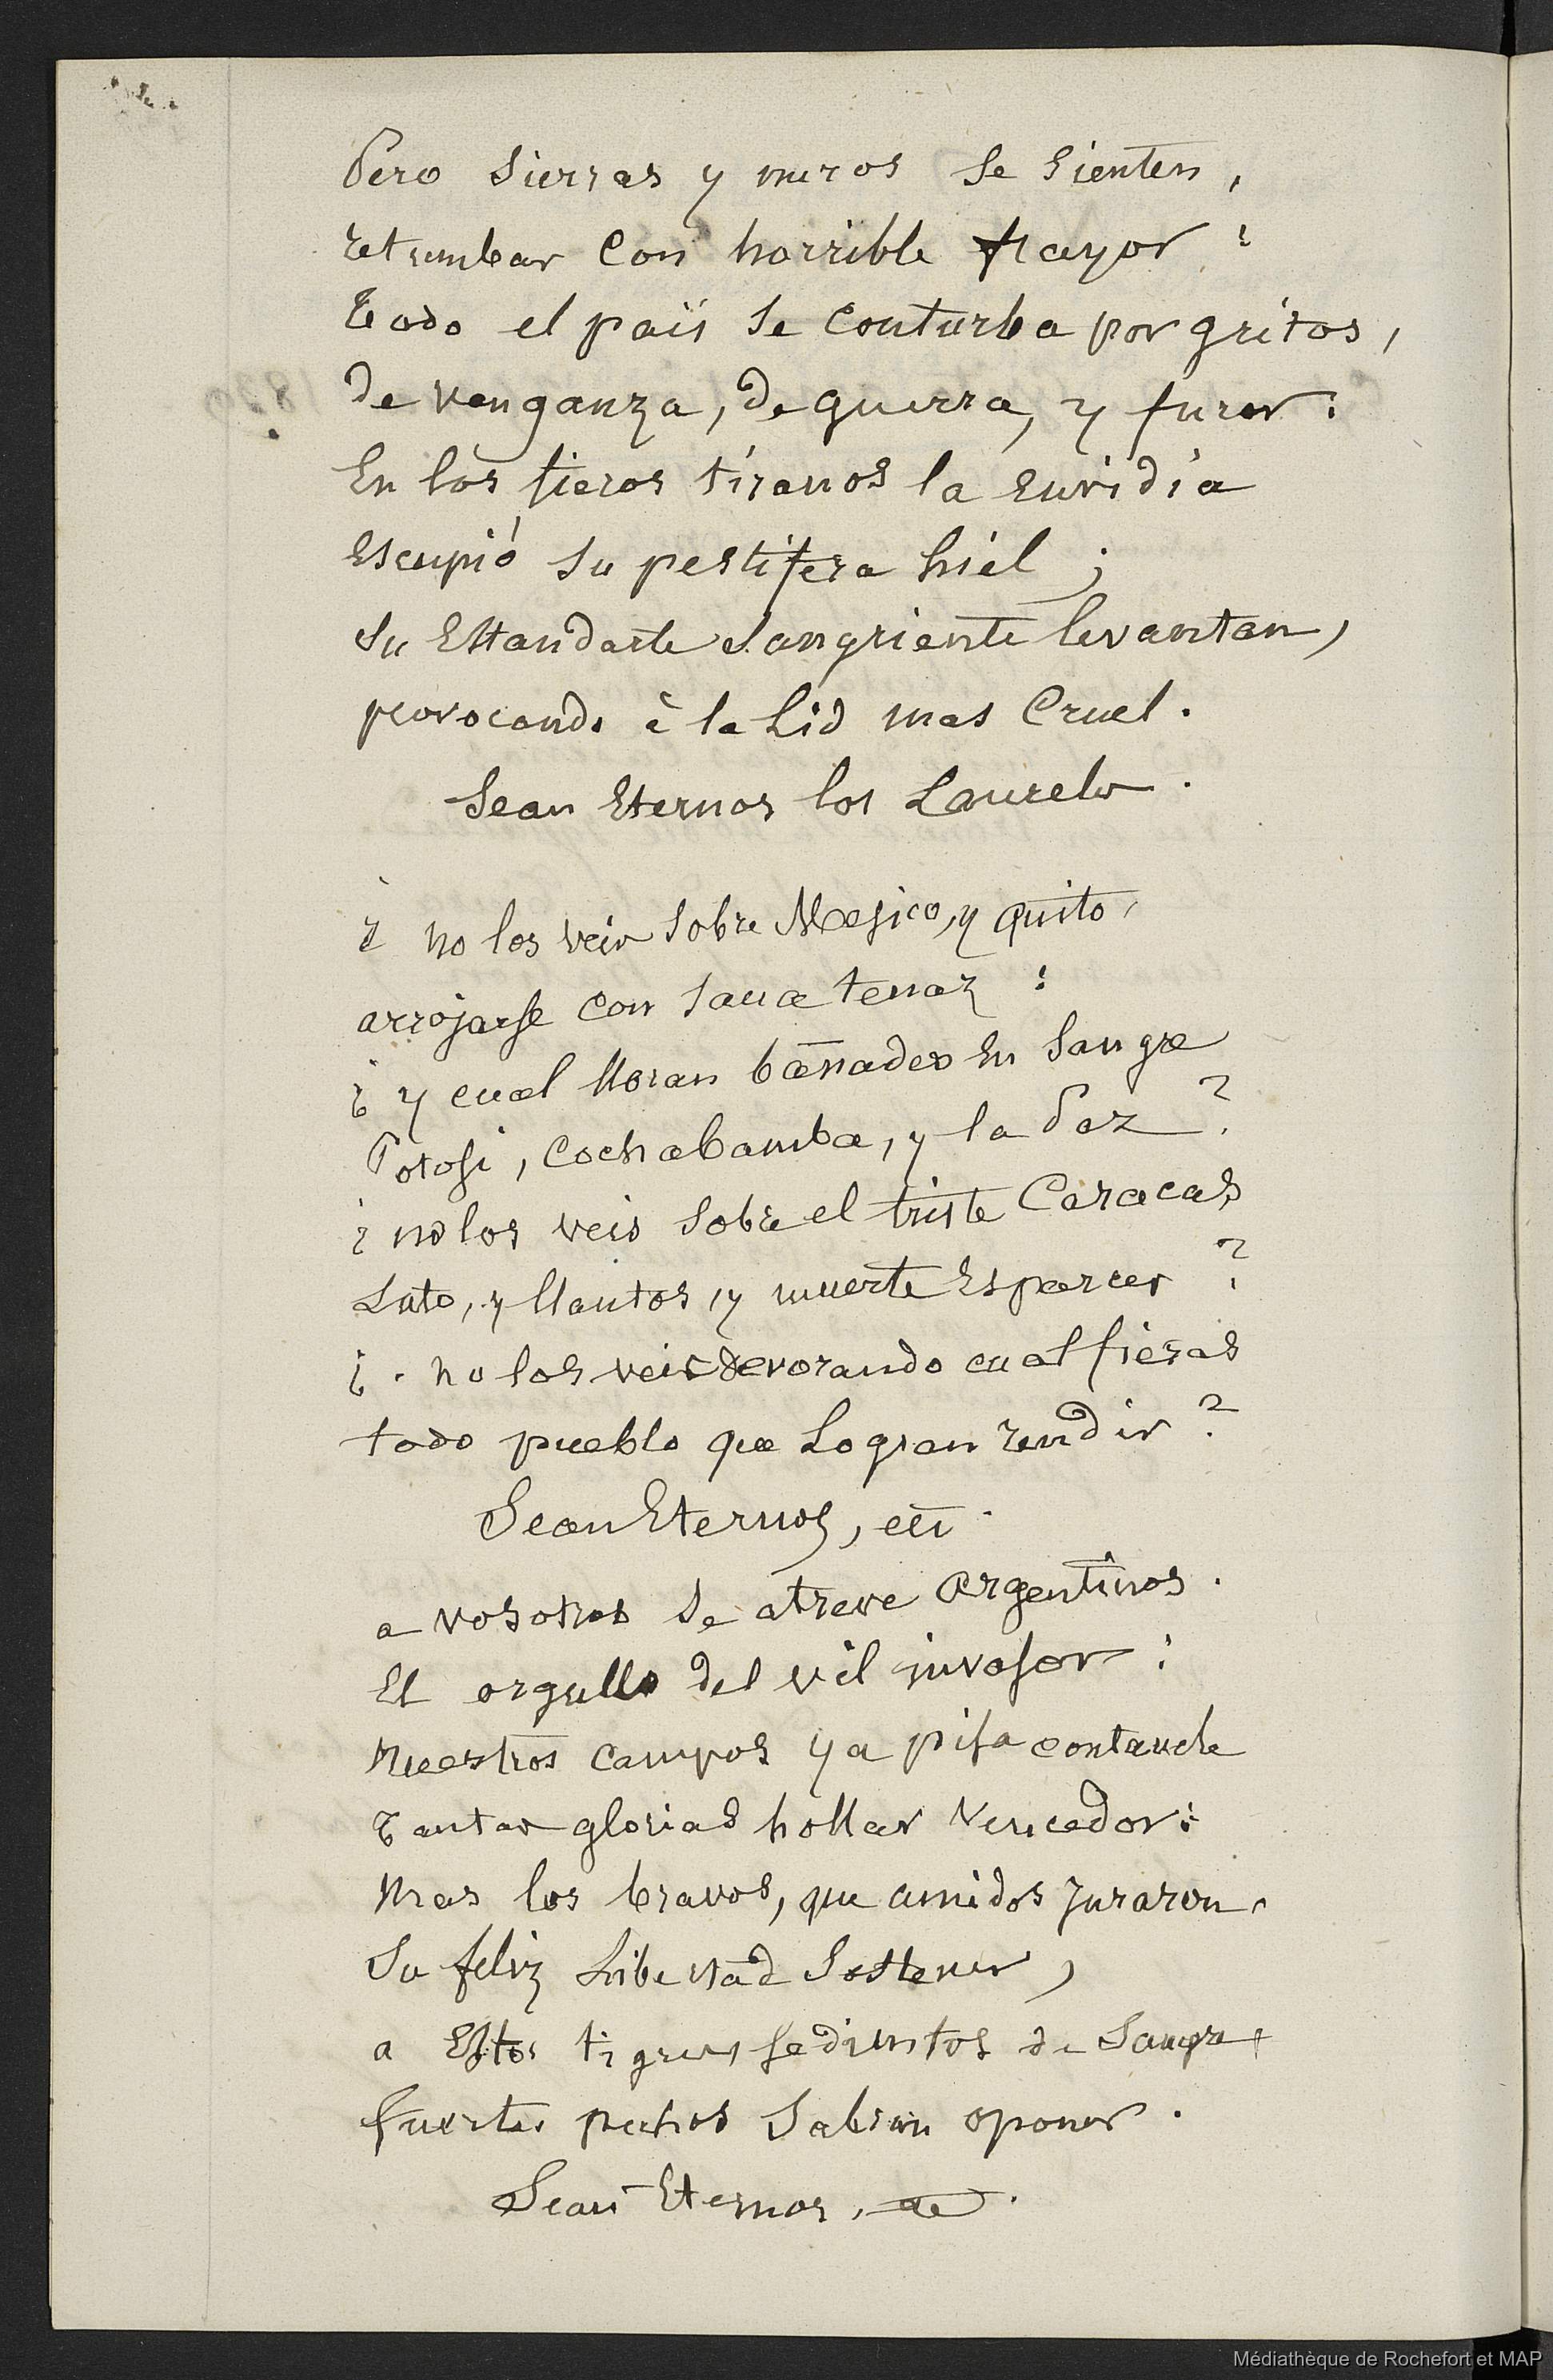 Pero sierras y muros se sienten,
retumbar con horrible fragor:
todo el païs se conturba por gritos,
de venganza, de guerra, y furor:
En los fieros tiranos la envidia
Escupió su pestifera hiel;
su Estandarte sangriente levantan,
provocando à la Lid mas Cruel.
Sean Eternos los Laureles.
¿ no los veis sobre Mesico, y quito,
arrojarse con sana tenaz:
¿ y cual lloran bañados En sangre
Potosi, Cochabamba, y la Paz?
¿ no los veis sobre el triste Caracas
Luto, y llantos, y muerte Esparcer?
¿. no los veis devorando cual fieras
todo pueblo que Logran rendir?
Sean Eternos, etc.
a vosotros se atreve argentinos.
El orgullo del vil invasor:
Nuestros campos ya pisa contando
Tantas glorias hollar Vencedor:
Mas los bravos, que unidos Juraron,
Su feliz Libertad Sostener,
a Estos tigres sedientos de Sangre
fuertes pechos Sabran oponer.
Sean Eternos, &e.
Médiathèque de Rochefort et MAP